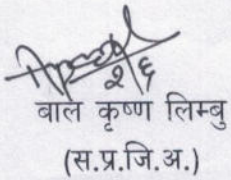 २/६
बाल कृष्ण लिम्बु
(स.प्र.जि.अ.)